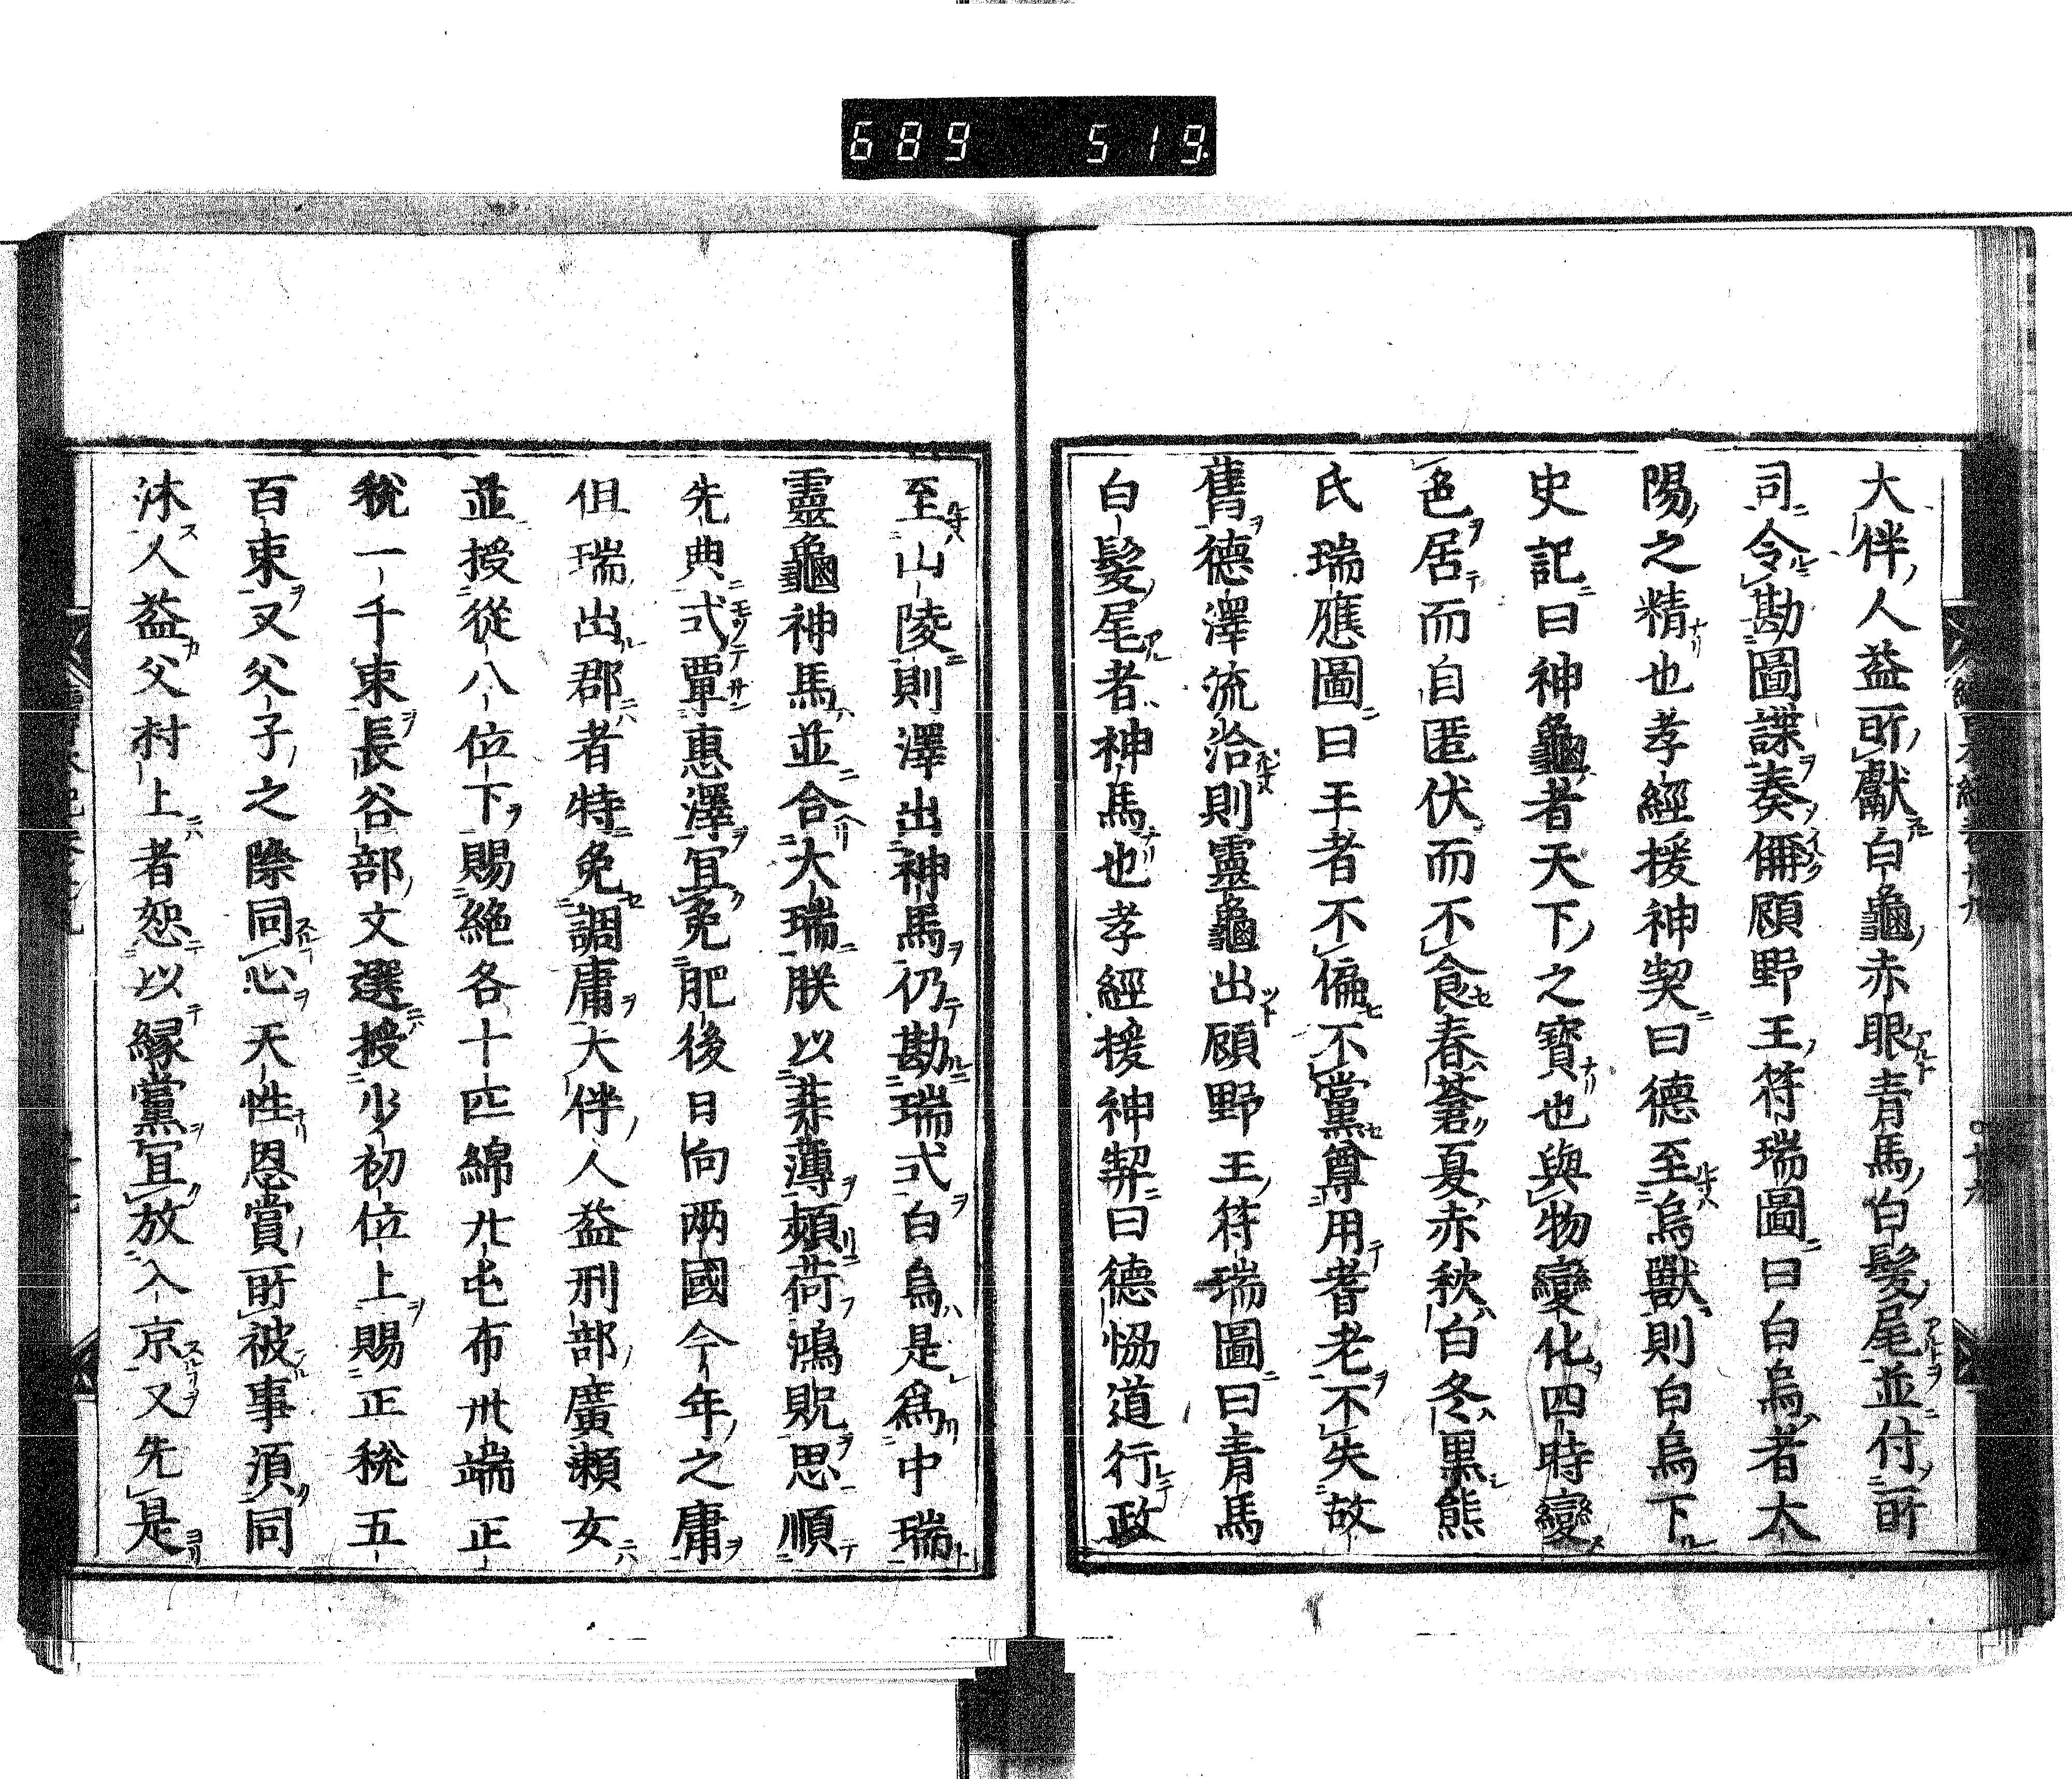 689 519.
大伴人益所獻白龜赤眼青馬白髮尾並付所
司令勘圖諜奏偁顧野王符瑞圖曰白烏者太
陽之精也孝經援神契曰德至鳥獸則白烏下
史記曰神龜者天下之寶也與物變化四時變
色居而自匿伏而不食春蒼夏赤秋白冬黑熊
氏瑞應圖曰王者不偏不黨尊用耆老不失故
舊德澤流洽則靈龜出顧野王符瑞圖曰青馬
白髮尾者神馬也孝經援神契曰德恊道行政
至山陵則澤出神馬仍勘瑞式白烏是爲中瑞
靈龜神馬並合大瑞朕以菲薄頻荷鴻貺思順
先典式覃惠澤冝免肥後日向两國今年之庸
但瑞出郡者特免調庸大伴人益刑部廣瀬女
並授從八位下賜絁各十匹綿廾屯布丗端正
稅一千束長谷部文選授少初位上賜正稅五
百束又父子之際同心天性恩賞所被事須同
沐人益父村上者恕以縁黨冝放入京又先是